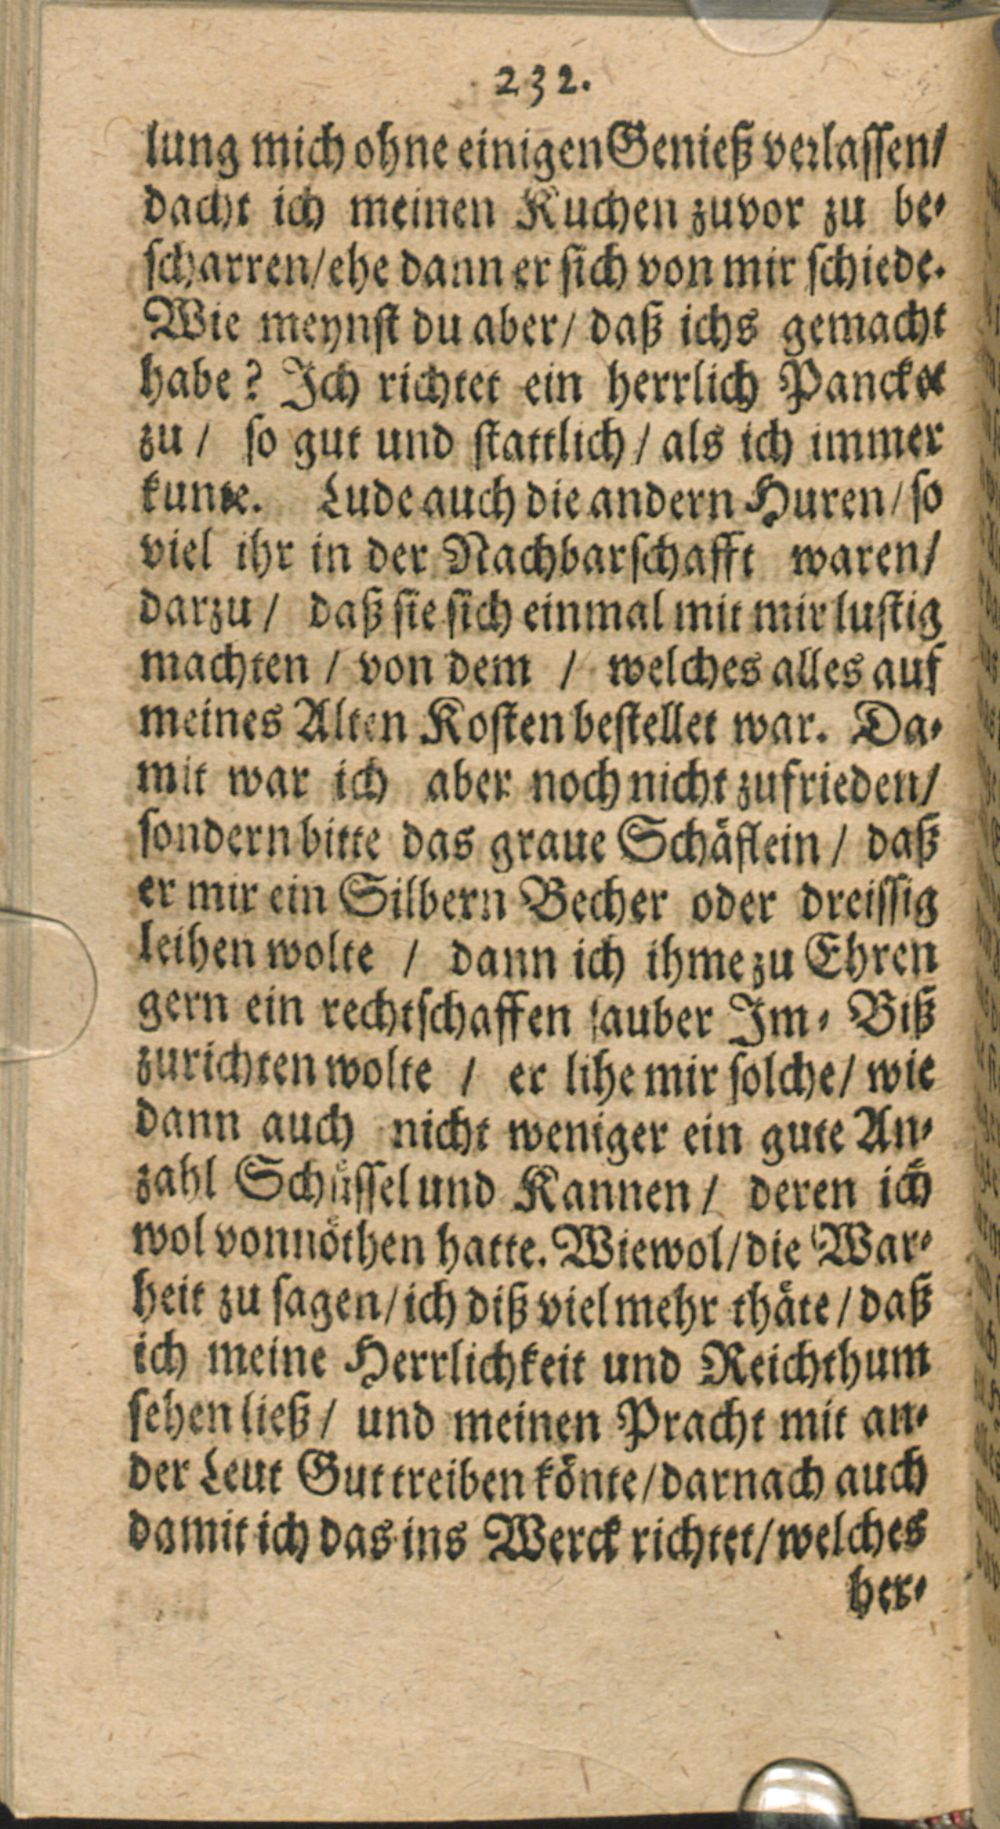 232.
lung mich ohne einigen Genieß verlassen/
dacht ich meinen Kuchen zuvor zu be-
scharren/ehe dann er sich von mir schiede.
Wie meynst du aber/ daß ichs gemacht
habe? Ich richtet ein herrlich Pancket
zu / so gut und stattlich / als ich immer
kunte. Lude auch die andern Huren / so
viel ihr in der Nachbarschafft waren/
darzu / daß sie sich einmal mit mir lustig
machten / von dem / welches alles auf
meines Alten Kosten bestellet war. Da-
mit war ich aber noch nicht zufrieden/
sondern bitte das graue Schäflein / daß
er mir ein Silbern Becher oder dreissig
leihen wolte / dann ich ihme zu Ehren
gern ein rechtschaffen sauber Im- Biß
zurichten wolte / er lihe mir solche/ wie
dann auch nicht weniger ein gute An-
zahl Schüssel und Kannen / deren ich
wol vonnöthen hatte. Wiewol/die War-
heit zu sagen/ich diß viel mehr thäte/daß
ich meine Herrlichkeit und Reichthum
sehen ließ / und meinen Pracht mit an-
der Leut Gut treiben könte/darnach auch
damit ich das ins Werck richtet/welches
her-